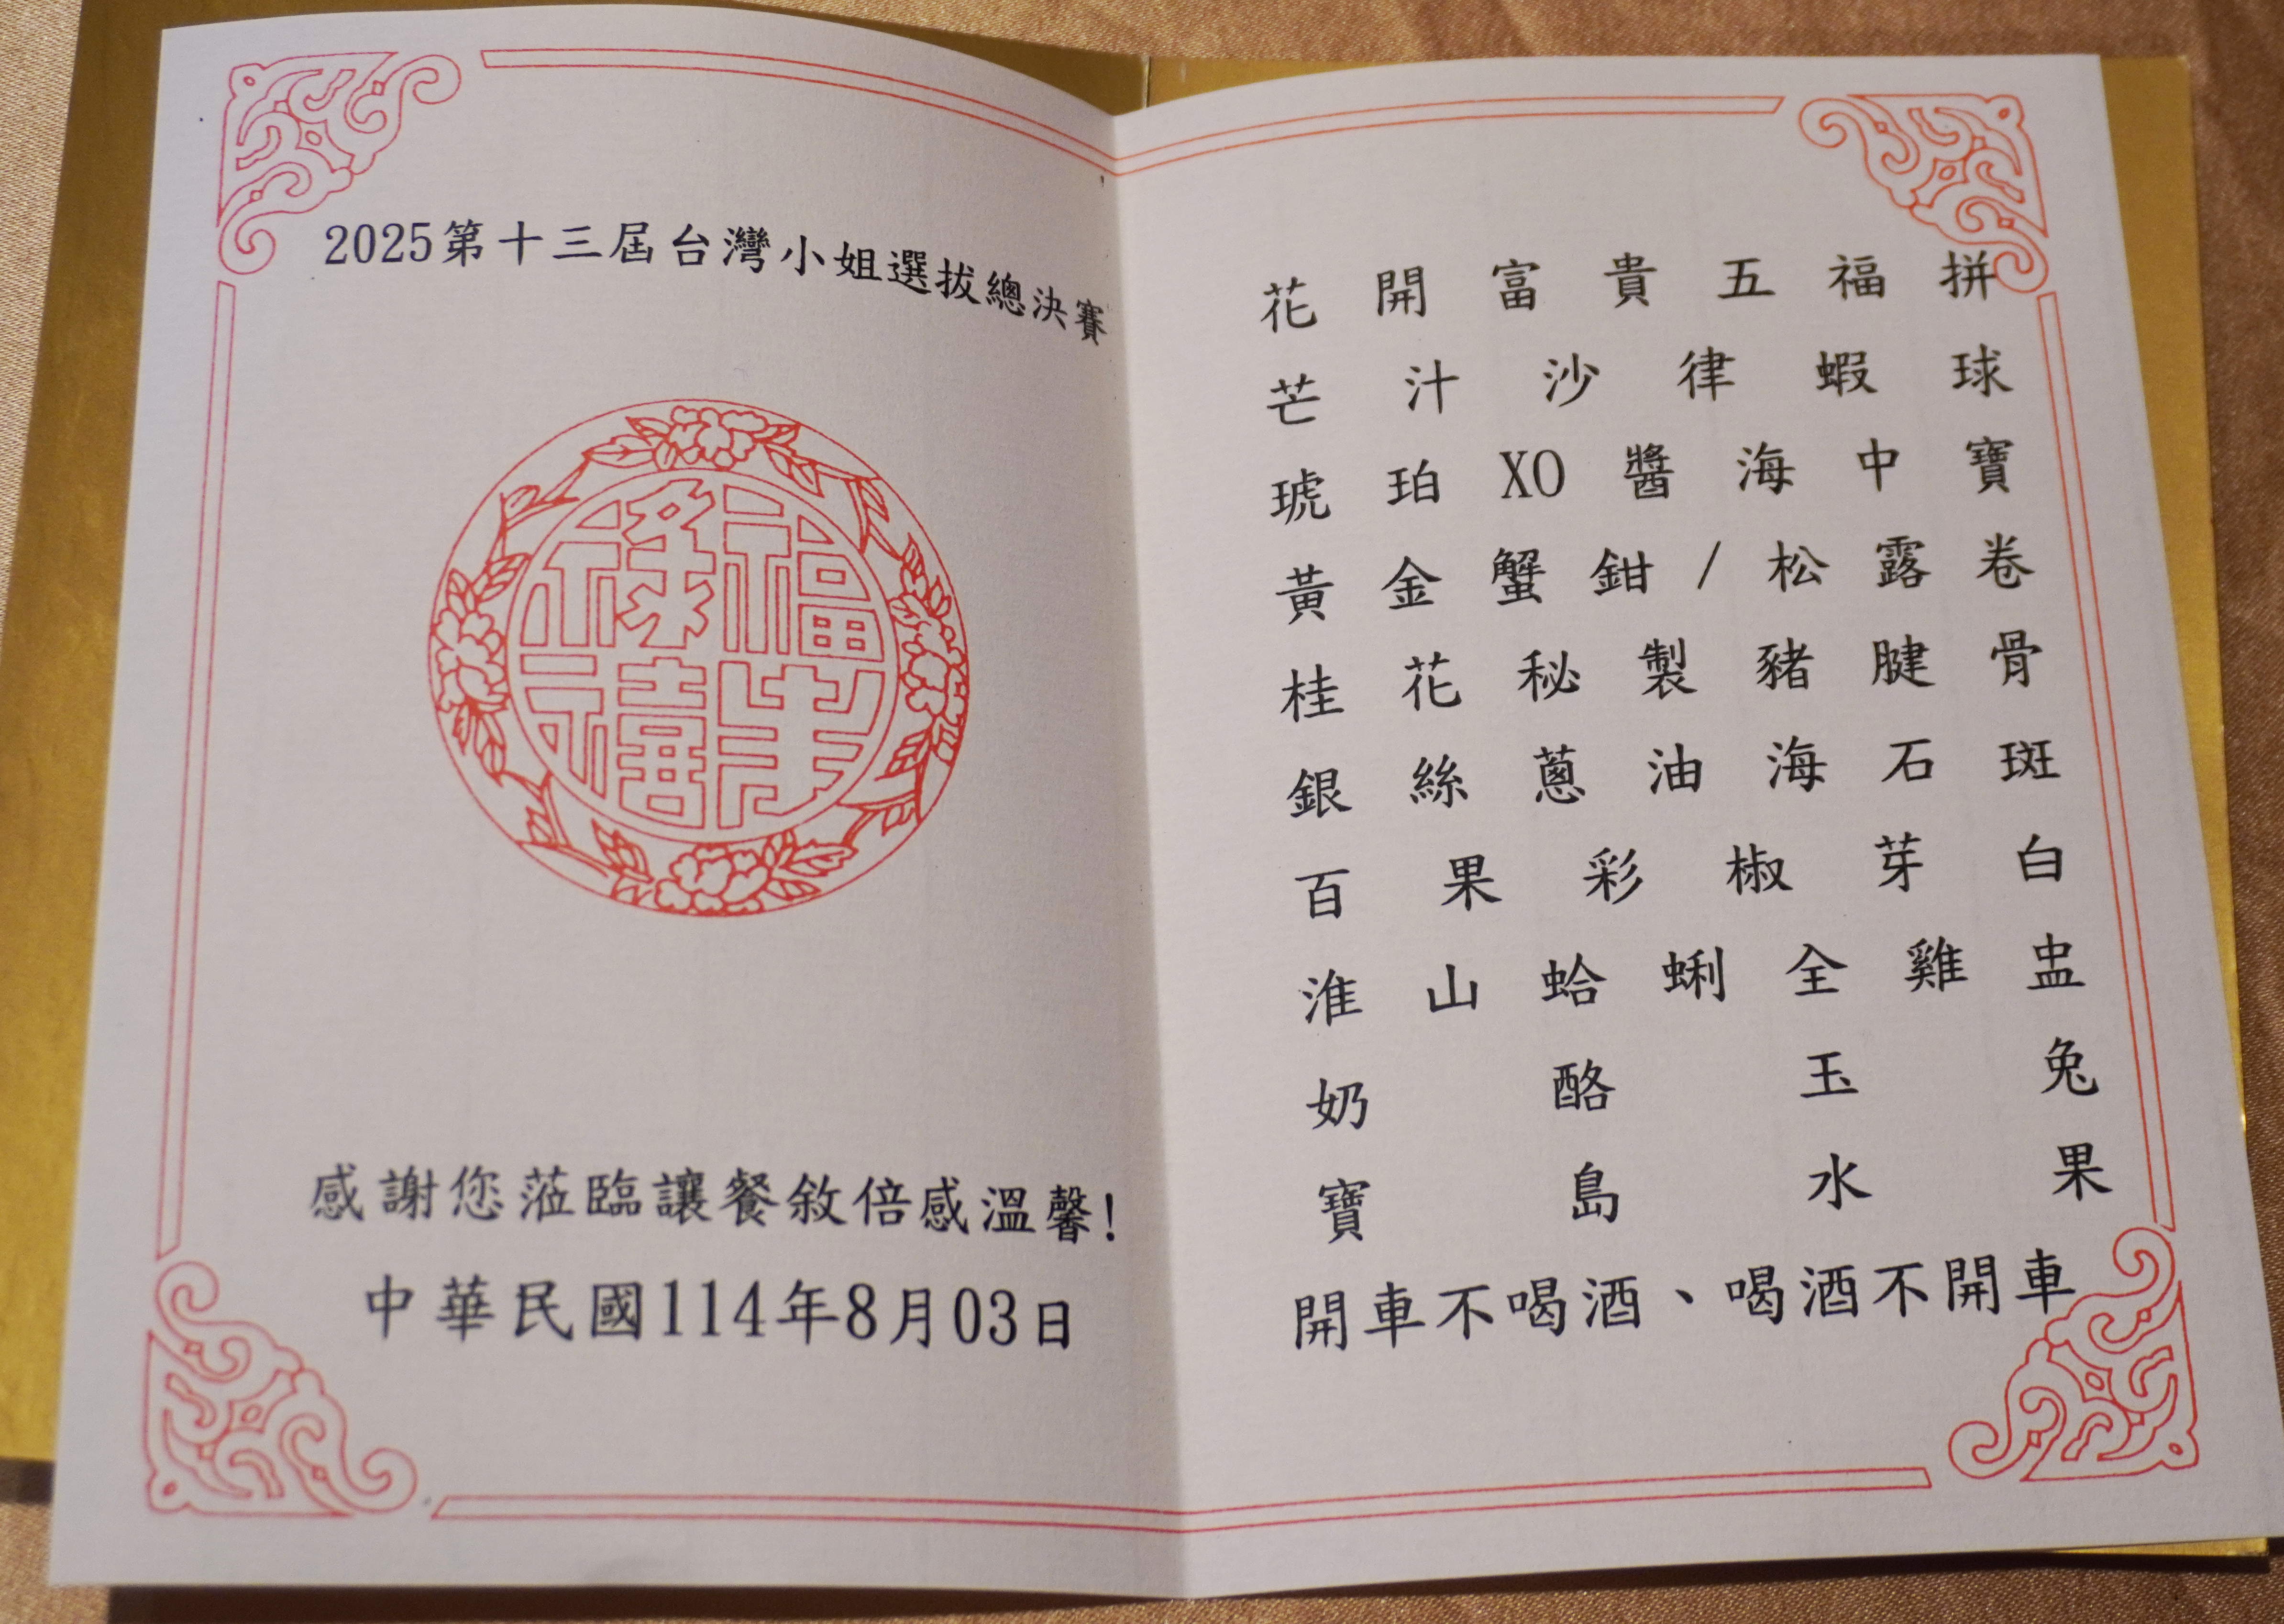 2025第十三屆台灣小姐選拔總決賽
福祿壽禧
感謝您蒞臨讓餐敘倍感溫馨!
中華民國114年8月03日
花開富貴五福拼
芒汁沙律蝦球
琥珀XO醬海中寶
黃金蟹鉗/松露卷
桂花秘製豬腱骨
銀絲蔥油海石斑
百果彩椒芽白
淮山蛤蜊全雞盅
奶酪玉兔
寶島水果
開車不喝酒、喝酒不開車